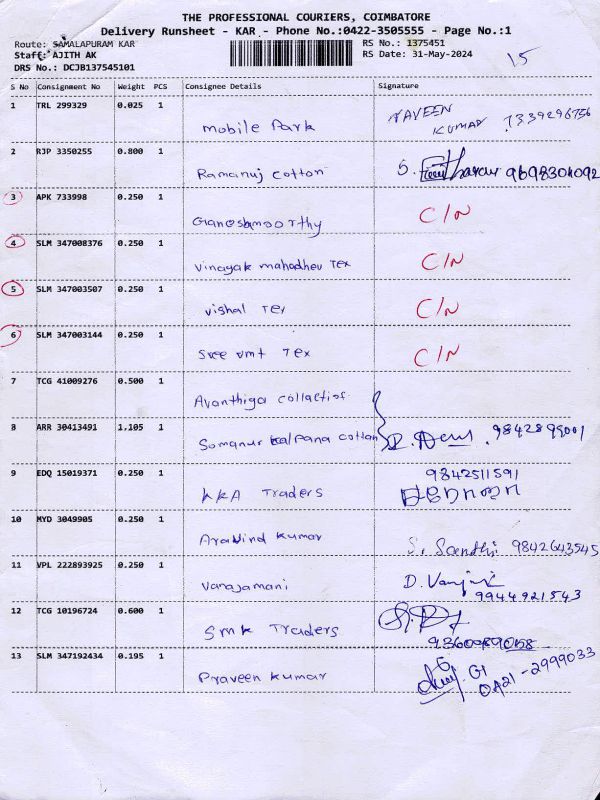 THE PROFESSIONAL COURIERS, COIMBATORE
Delivery Runsheet - KAR - Phone No.:0422-3505555 - Page No.:1
Route: SAMALAPURAM KAR RS No.: 1375451
Staff: AJITH AK RS Date: 31-May-2024 15
DRS No.: DCJB137545101
S No Consignment No Weight PCS Consignee Details Signature
1 TRL 299329 0.025 1 mobile Park NAVEEN KUMAR 7339296756
2 RJP 3350255 0.800 1 Ramanuj cotton S. 9698304092
3 APK 733998 0.250 1 Ganeshmoorthy C/N
4 SLM 347008376 0.250 1 vinayak mahadhev Tex C/N
5 SLM 347003507 0.250 1 vishal Tex C/N
6 SLM 347003144 0.250 1 Sree vmt Tex C/N
7 TCG 41009276 0.500 1 Avanthiga collaction
8 ARR 30413491 1.105 1 Somanur kalpana cotton 9842899001
9 EDQ 15019371 0.250 1 KKA Traders 9842511591
10 MYD 3049905 0.250 1 Aravind kumar S. Santhi 9842643545
11 VPL 222893925 0.250 1 Vanajamani D. 9944921543
12 TCG 10196724 0.600 1 SMK Traders
13 SLM 347192434 0.195 1 Praveen kumar 0421-2999033